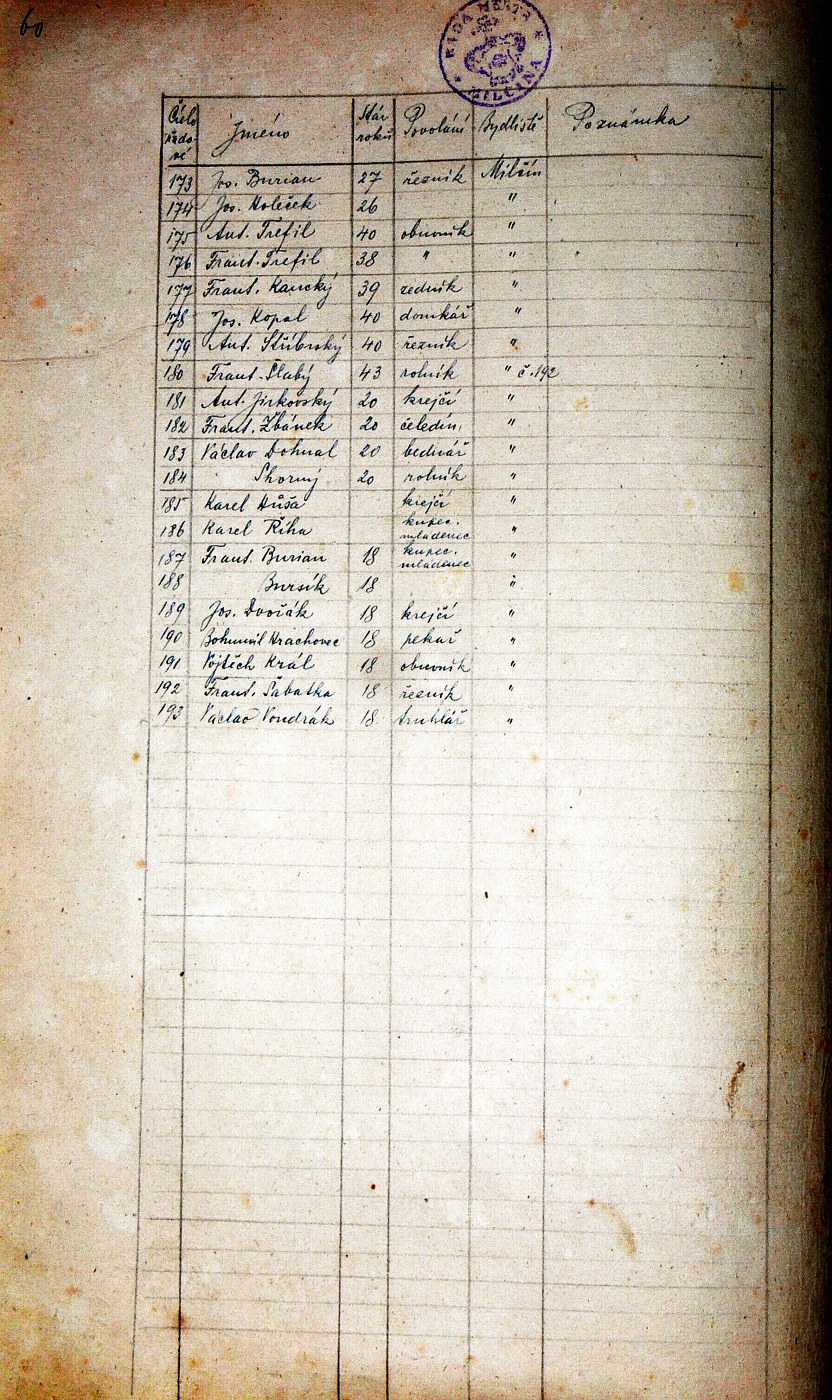 60
RADA MĚSTA
MILČÍNA
Číslo řadové Jméno Stár roků Povolání Bydliště Poznámka
173 Jos. Burian 27 řezník Milčín
174 Jos. Holeček 26 "
175 Ant. Trefil 40 obuvník "
176 Frant. Trefil 38 " "
177 Frant. Kaucký 39 zedník "
178 Jos. Kopal 40 domkář "
179 Ant. Stříbrský 40 řezník "
180 Frant. Slabý 43 rolník " č. 192
181 Ant. Jirkovský 20 krejčí "
182 Frant. Zbánek 20 čeledín, "
183 Václav Dohnal 20 bednář "
184 Shorný 20 rolník "
185 Karel Hůša krejčí "
186 Karel Říha kupec. mládenec "
187 Frant. Burian 18 kupec. mládenec "
188 Bursík 18 "
189 Jos. Dvořák 18 krejčí "
190 Bohumil Hrachovec 18 pekař "
191 Vojtěch Král 18 obuvník "
192 Frant. Sabatka 18 řezník "
193 Václav Vondrák 18 truhlář "